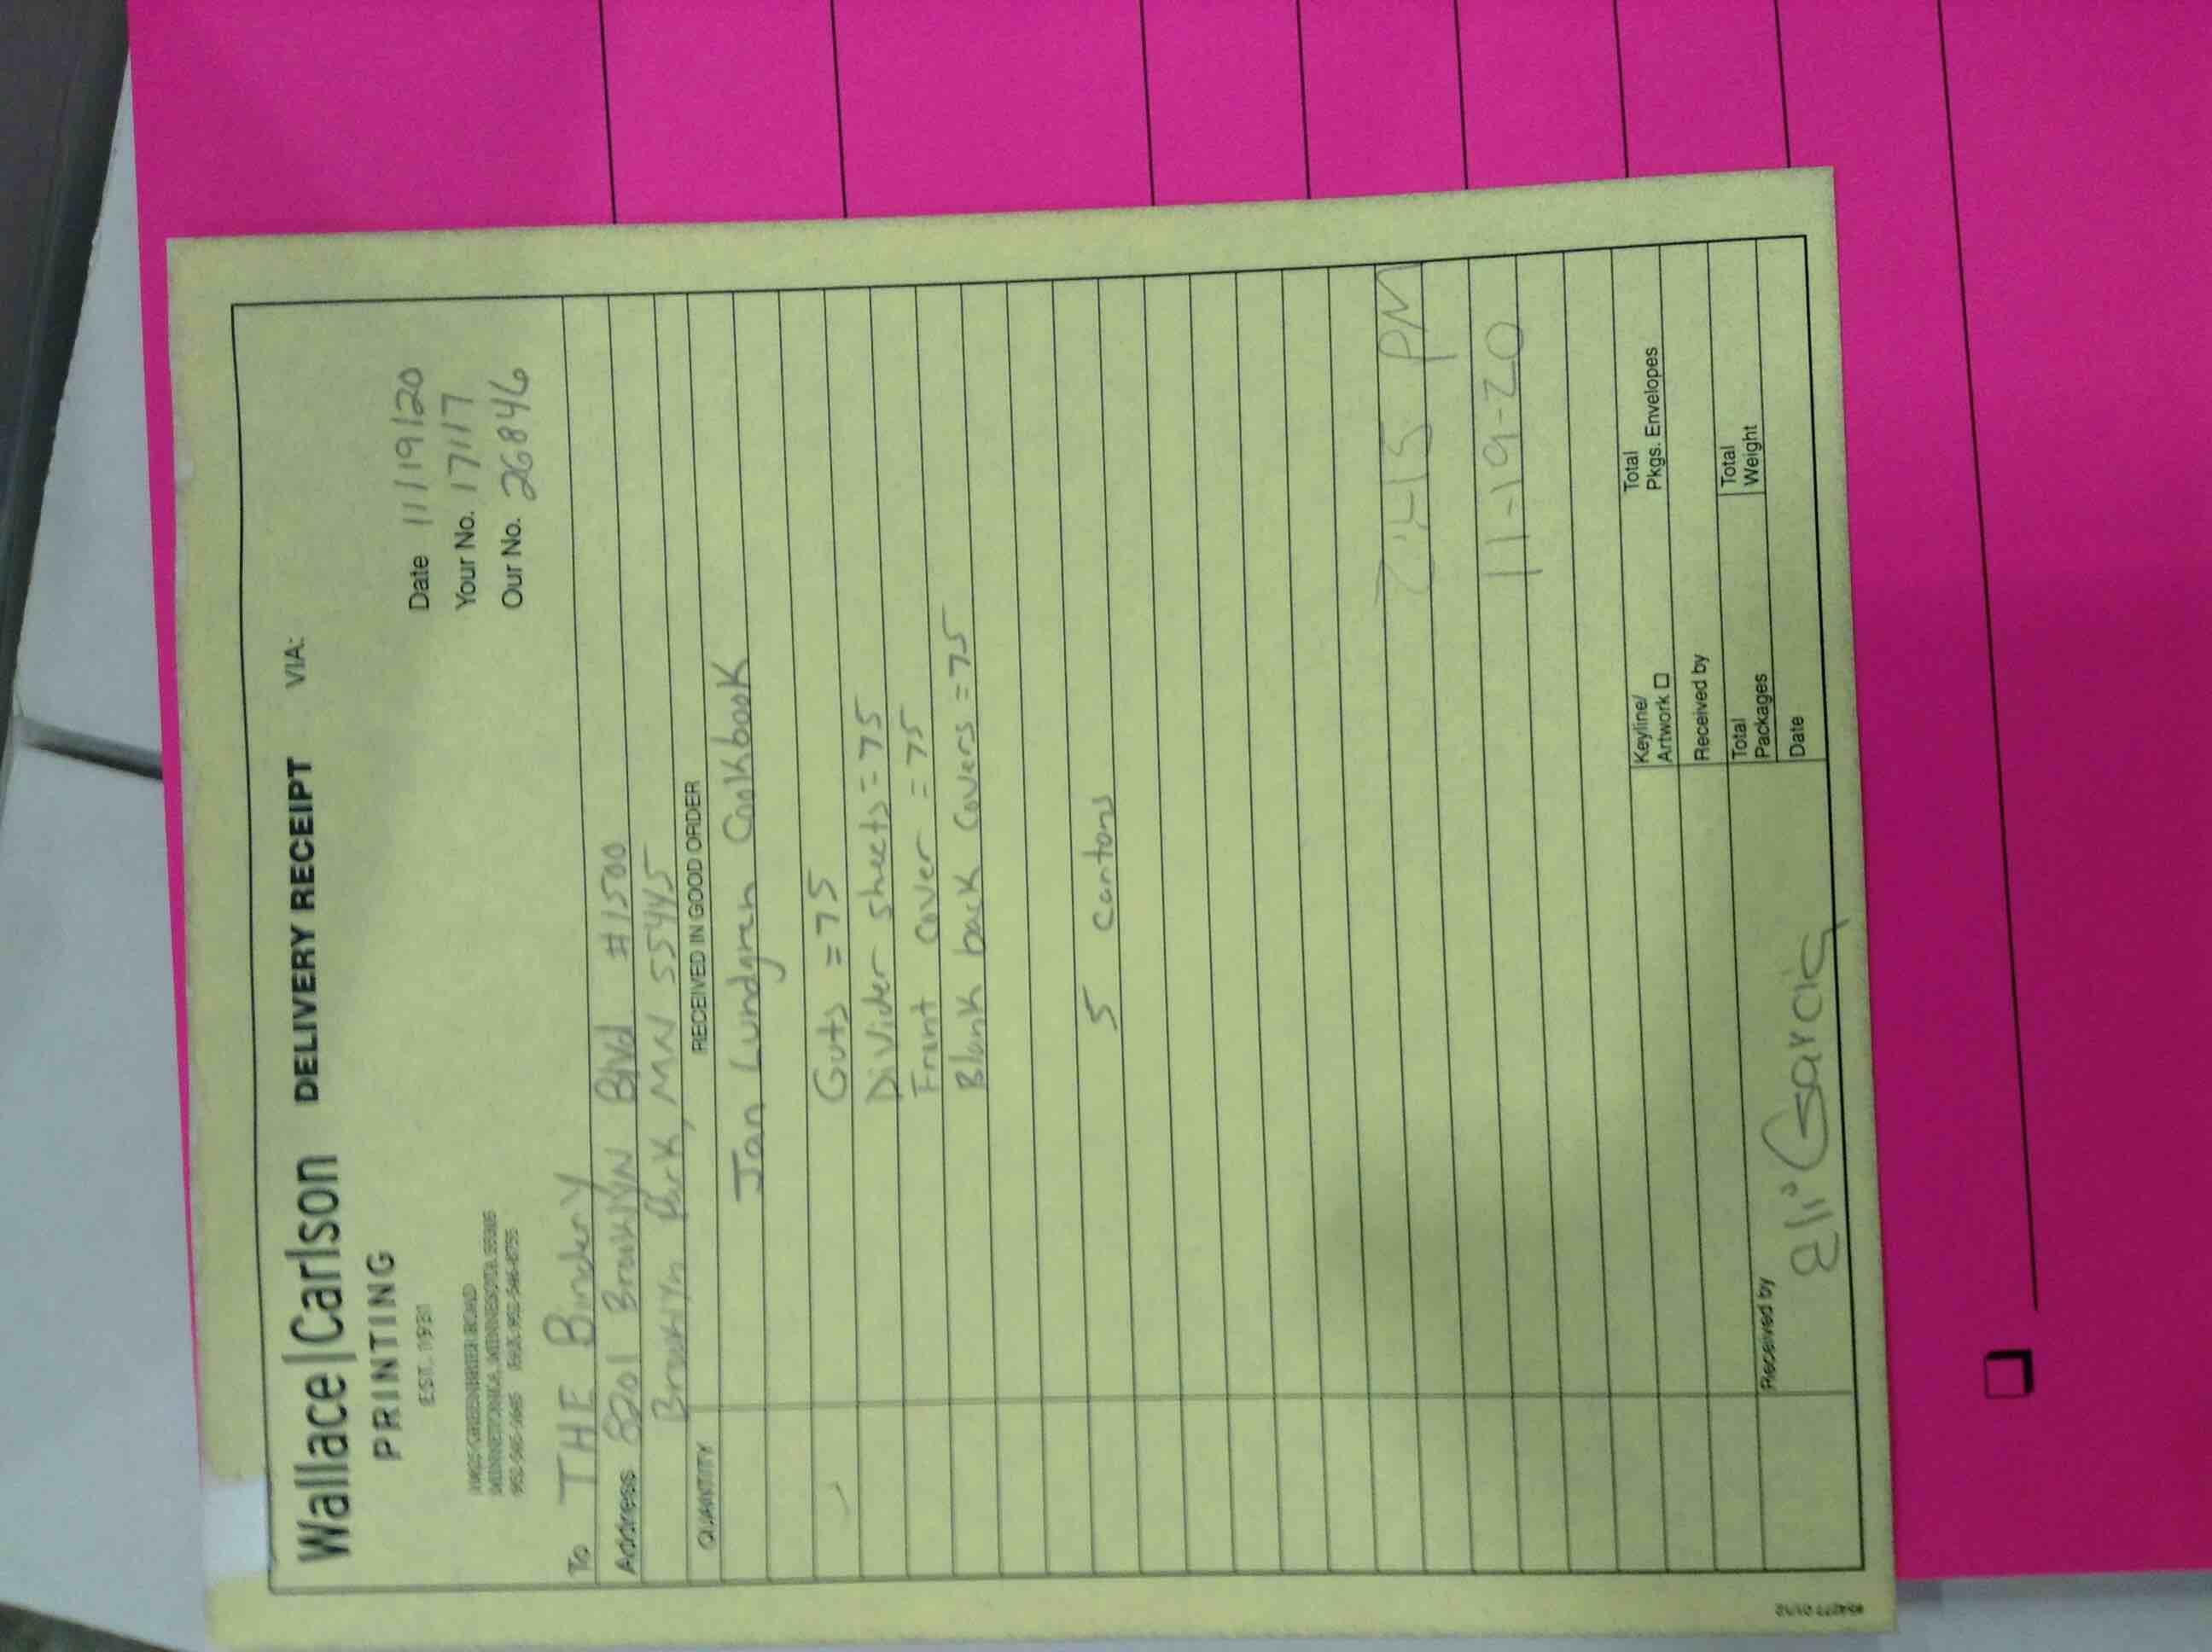 Wallace|Carlson DELIVERY RECEIPT VIA:
PRINTING
EST. 1931
Date 11/19/20
Your No. 17117
Our No. 26846
MINNETONKA, MINNESOTA 55305
To THE Bindery
Address 8201 Brooklyn Blvd #1500
Brooklyn Park, MN 55445
QUANTITY RECEIVED IN GOOD ORDER
Jan Lundgren Cookbook
Guts = 75
Divider sheets = 75
Front cover = 75
Blank back covers = 75
5 cartons
2:15 PM
11-19-20
Keyline/
Artwork
Total
Pkgs. Envelopes
Received by
Total
Packages
Total
Weight
Date
Received by
Eli Garcia